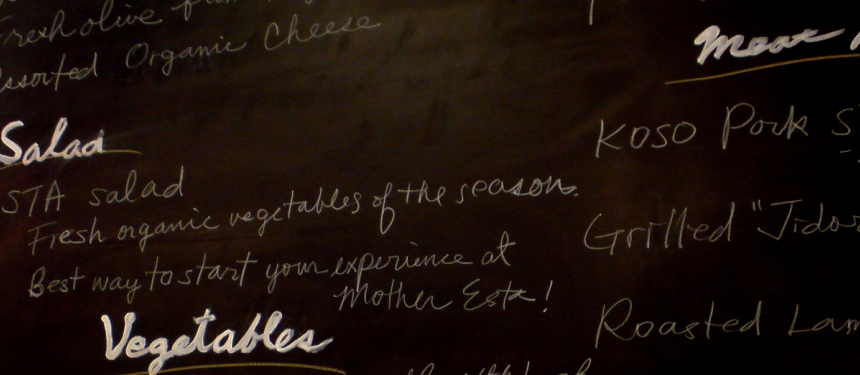 Fresh olive
Assorted Organic Cheese
Salad
STA salad
Fresh organic vegetables of the season.
Best way to start your experience at
Mother Esta!
Vegetables
Meat
KOSO Pork S
Grilled "Jido
Roasted Lam